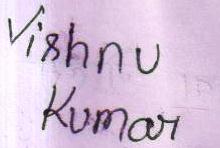 Vishnu
Kumar